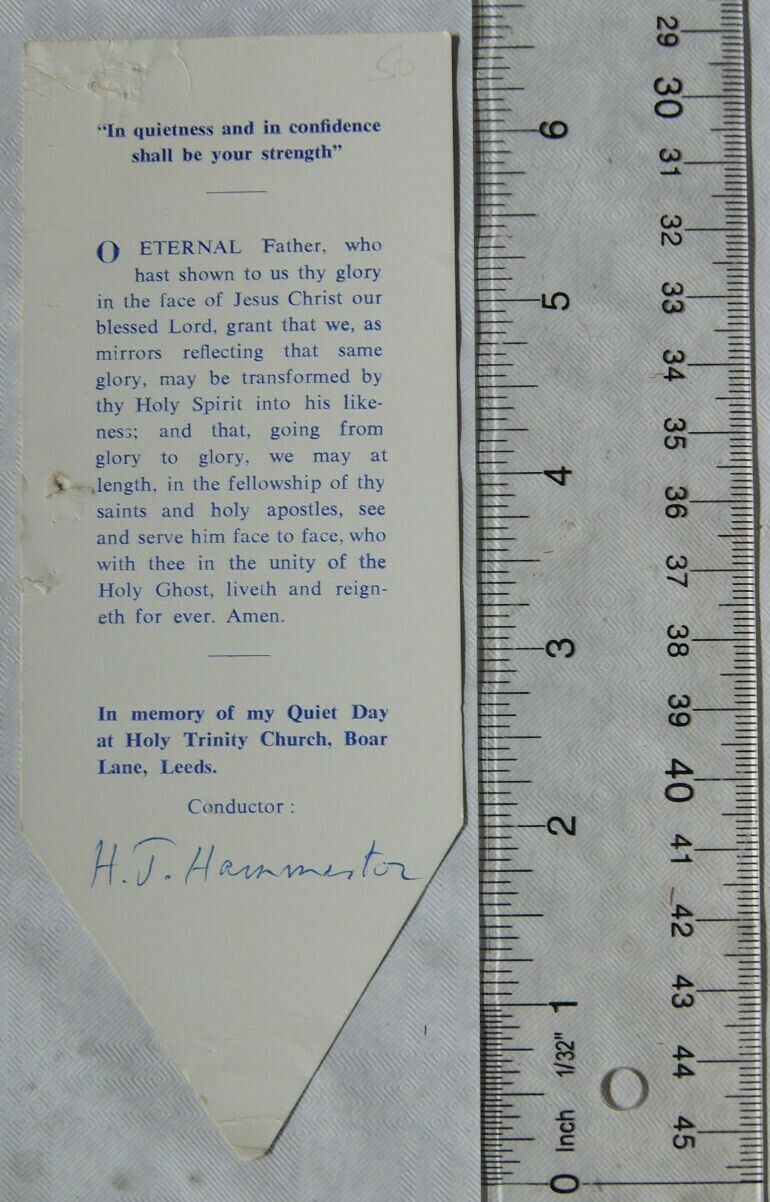 50
“In quietness and in confidence
shall be your strength”
O ETERNAL Father, who
hast shown to us thy glory
in the face of Jesus Christ our
blessed Lord, grant that we, as
mirrors reflecting that same
glory, may be transformed by
thy Holy Spirit into his like-
ness; and that, going from
glory to glory, we may at
length, in the fellowship of thy
saints and holy apostles, see
and serve him face to face, who
with thee in the unity of the
Holy Ghost, liveth and reign-
eth for ever. Amen.
In memory of my Quiet Day
at Holy Trinity Church, Boar
Lane, Leeds.
Conductor :
H. J. Hammerton
6
5
4
3
2
1
0 Inch 1/32"
29
30
31
32
33
34
35
36
37
38
39
40
41
42
43
44
45